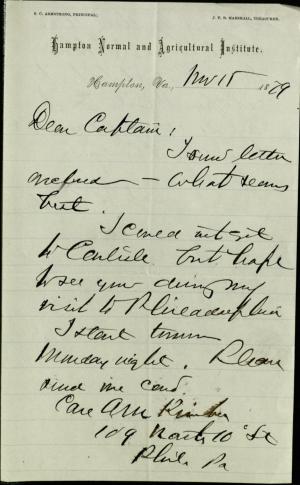 S. C. ARMSTRONG, PRINCIPAL. J. F. B. MARSHALL, TREASURER.
Hampton Normal and Agricultural Institute.
Hampton, Va., Nov 15 1879
Dear Captain;
Your letter
received — What seems
best.
I could not get
to Carlisle but hope
to see you during my
visit to Philadelphia
I start
Monday night. Please
send me card
Care A M Kimber
109 North 10th St
Phila Pa